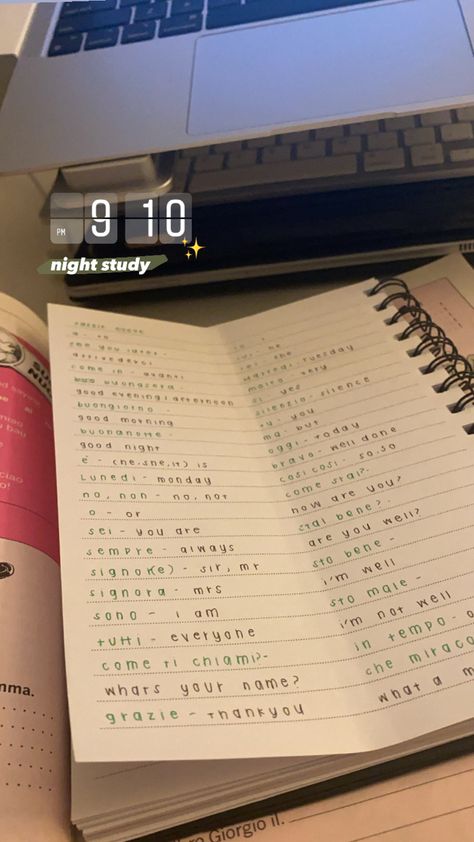 PM 9 10
night study
a - to
see you later -
arrivederci
come in - avanti
buonasera -
good evening/afternoon
buongiorno -
good morning
buonanotte -
good night
è - (he, she, it) is
Lunedì - monday
no, non - no, not
o - or
sei - you are
sempre - always
signor(e) - sir, mr
signora - mrs
sono - i am
tutti - everyone
come ti chiami? -
whats your name?
grazie - thankyou
Martedì - Tuesday
molto - very
sì - yes
silenzio - silence
tu - you
ma - but
oggi - today
bravo - well done
così così - so, so
come stai? -
how are you?
stai bene? -
are you well?
sto bene -
i'm well
sto male -
i'm not well
in tempo - o
che miraco
what a m
nma.
Giorgio il.